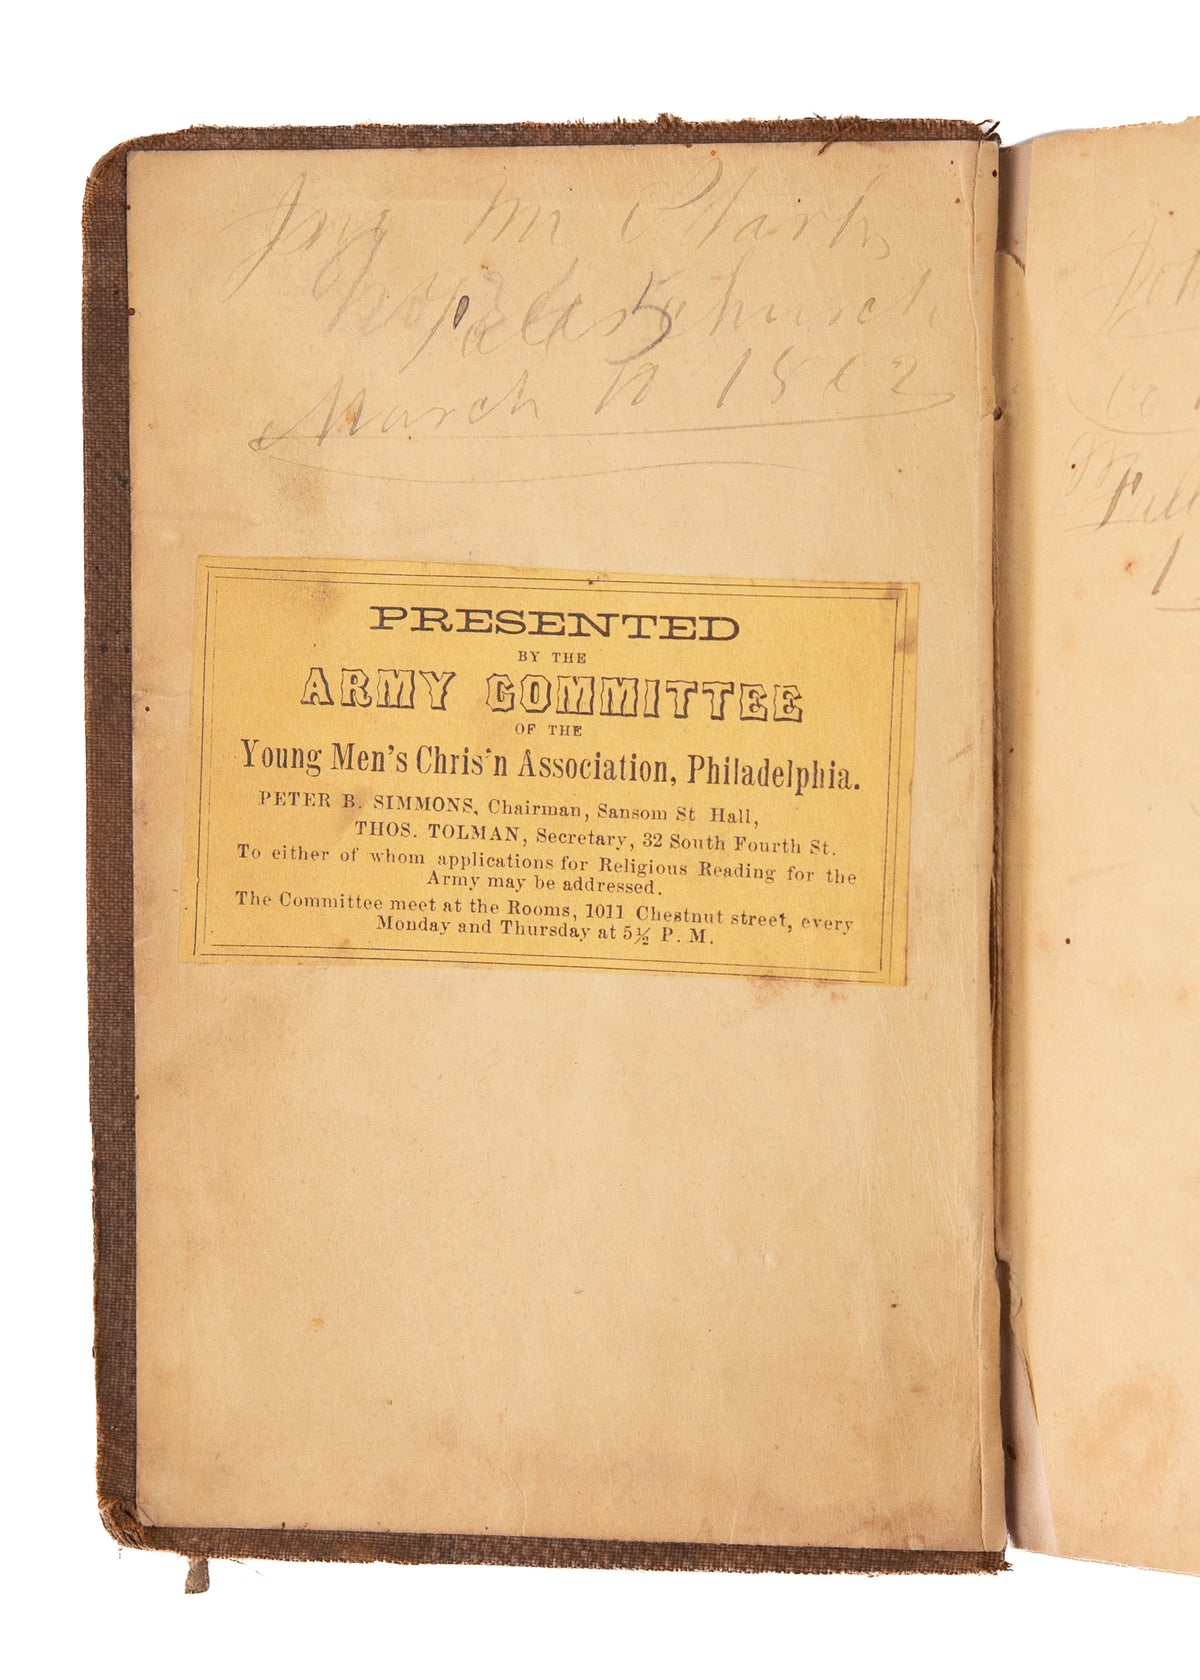 M Stark
Falls Church
March 10 1862
PRESENTED
BY THE
ARMY COMMITTEE
OF THE
Young Men's Chris'n Association, Philadelphia.
PETER B. SIMMONS, Chairman, Sansom St Hall,
THOS. TOLMAN, Secretary, 32 South Fourth St.
To either of whom applications for Religious Reading for the
Army may be addressed.
The Committee meet at the Rooms, 1011 Chestnut street, every
Monday and Thursday at 5½ P. M.